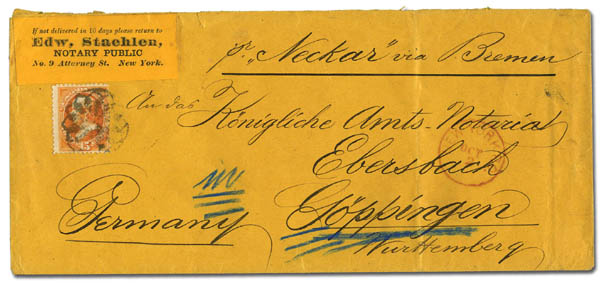 If not delivered in 10 days please return to
Edw. Staehlen,
NOTARY PUBLIC
No. 9 Attorney St. New York.
pr "Neckar" via Bremen
An das
Königliche Amts-Notaria
Ebersbach
in
Göppingen
Germany
Württemberg
OCT